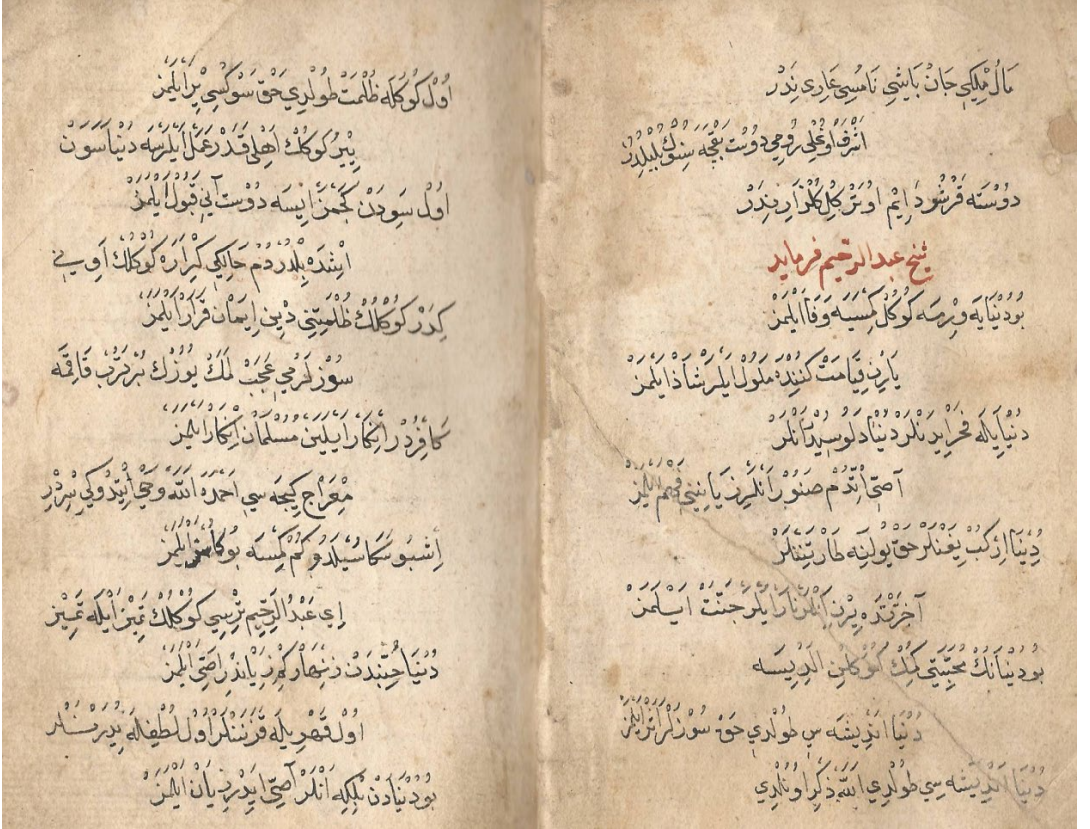 مَالُ مُلْكِي جَانُ بَاشِي نَامُسِي عَارِي نَدُرْ
اَشْرَفْ اوُغْلِي رُومِي دُوسْت بَقْچَه سِنُوكْ بُلْبُلِدُرْ
دُوسْتَه قَرْشُو دَايِمْ اوُتَرْ كُلْ كُلْزَارِ نِدَرْ
شيخ عبد الرحيم فرمايد
بُو دُنْيَايَه وِيرْمَه كُوكُلْ كِمْسَيَه وَفَا اَيْلَمَزْ
يَارِنْ قِيَامَتْ كُنِنْدَه مَلُولْ اَيْلَرْ شَاذْ اَيْلَمَزْ
دُنْيَايِلَه فَخْرْ اِيدَنْلَرْ دُنْيَا دَلُوسِيدُرْ اَنْلَرْ
آصّي اِتْدُمْ صَنُورْ اَنْلَرْ زِيَانِنِي فَهْمْ اَيْلَمَزْ
دُنْيَا اِرْكُبْ يِغَنْلَرْ حَقْ يُولِنَه طَارْ تِنَنْلَرْ
آخِرَتْدَه يِرِنْ اَنْلَرْ نَارْ اَيْلَرْ جَنَّتْ اَيْلَمَزْ
بُو دُنْيَانُكْ مُحَبَّتِي كِمُكْ كُوكْلِنْ اَلْدِيسَه
دُنْيَا اَنْدِيشَه سِي طُولْدِي حَقْ سُوزْلَرْ اَثَرْ اَيْلَمَزْ
دُنْيَا اَنْدِيشَه سِي طُولْدِي اللّٰه ذِكْرِ اوُنُلْدِي
اُولْ كُوكُلَه ظُلْمَتْ طُولْدِي حَقْ سَوْكُسِي يِرْ اَيْلَمَزْ
بِيرْ كُوكُلْ اَهْلِي قَدَرْ عَمَلْ اَيْلَرْسَه دُنْيَا سَوَنْ
اُولْ سَوُدَنْ كَچْمَزْ اِيسَه دُوسْت آنِي قَبُولْ اَيْلَمَزْ
اِشْدَه بِلْدُرْدُمْ حَالِكِي كِرْ اَرَه كُوكْلُكْ اَوِينِي
كِدَرْ كُوكُلُكْ ظُلْمَتِنِي دِينْ اِيمَانْ قَرَارْ اَيْلَمَزْ
سُوزْلَرُمِي عَجَبْ لَمَكْ يُوزُكْ بُرْتَرُبْ قَاقِمَه
كَافِرْدُرْ اِنْكَارْ اَيْلَيَنْ مُسُلْمَانْ اِنْكَارْ اَيْلَمَزْ
مِعْرَاجْ كِيجَه سِي اَحْمَدَه اللّٰه وَحْي اِتْدُوكِي سِرْدِرْ
اِشْبُو سَكَا سُيْلَدُوكُمْ كِمْسَه بُو كَا اَيْلَمَزْ
اِي عَبْدُ الرَّحِيمْ تِرْسِي كُوكْلُكْ تَمِيزْ اَيْلَه تَمِيزْ
دُنْيَا حُبِّنْدَنْ زِنْهَارْ كِمْ زِيَانْدُرْ اَصِّي اَيْلَمَزْ
اُولْ قَهْرِيلَه قَزَنَنْلَرْ اُولْ لُطْفِلَه
بُو دُنْيَادَنْ بِلْكِلَه اَنْلَرْ آصّي اِيدَرْ زِيَانْ اَيْلَمَزْ